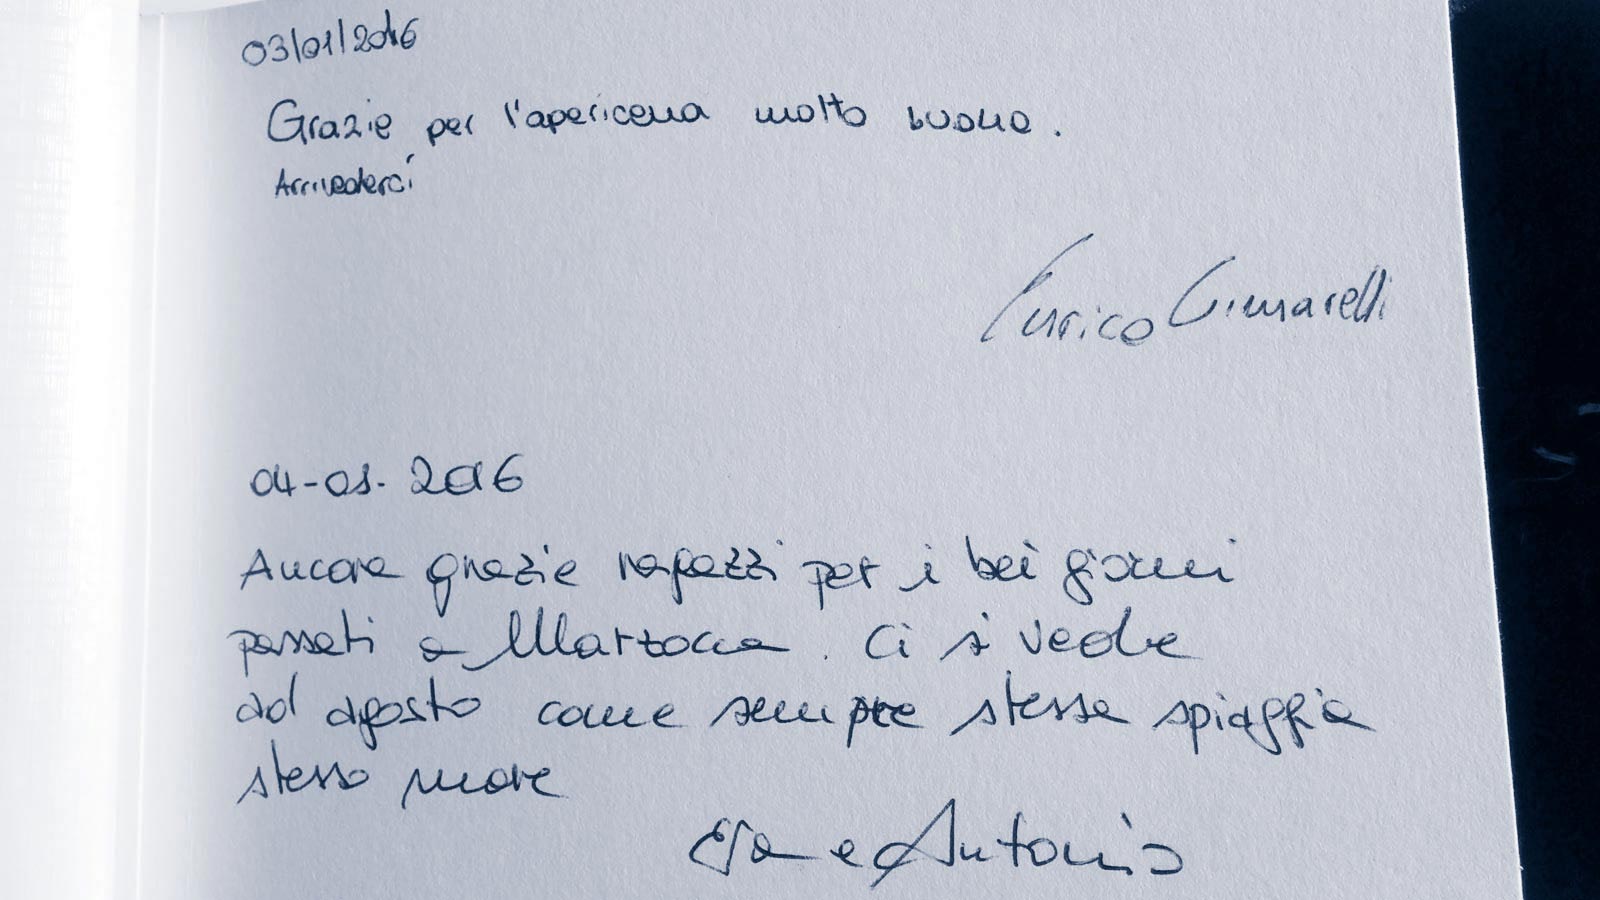 03/01/2016
Grazie per l'apericena molto buona.
Arrivederci
Enrico Cimarelli
04-01-2016
Ancora grazie ragazzi per i bei giorni
passati a Marzocca. Ci si vede
ad agosto come sempre stessa spiaggia
stesso mare
e Antonio